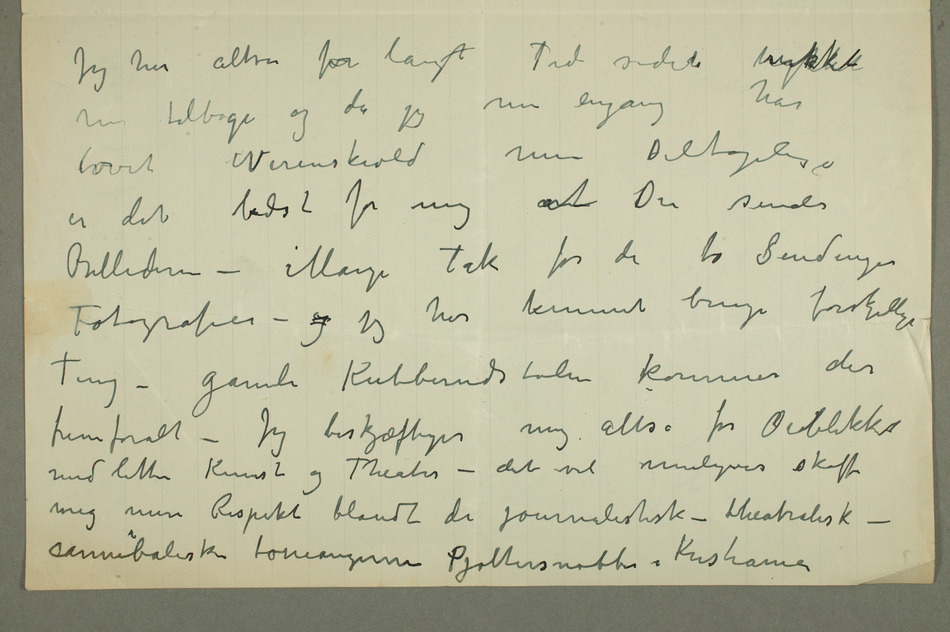 Jeg har altsa for langt Tid siden trykket
mi tilbage og da jeg nu engang har
lovet Werenskiold min Deltagelse
er det bedst for mig at De sender
Billederne – Mange Tak for de to Sendinger
Fotografier – og jeg har kunnet bruge forskjellige
Ting – gamle Kubberudstolen kommer der
fremforalt – Jeg beskjæftiger mig altsa for Øieblikket
med letter Kunst og Theater – det vil muligens skaffe
mig mere Respekt blandt de journalistisk – theatralisk –
cannibaliske toneangivende Pjoltersnobber i Kristiania